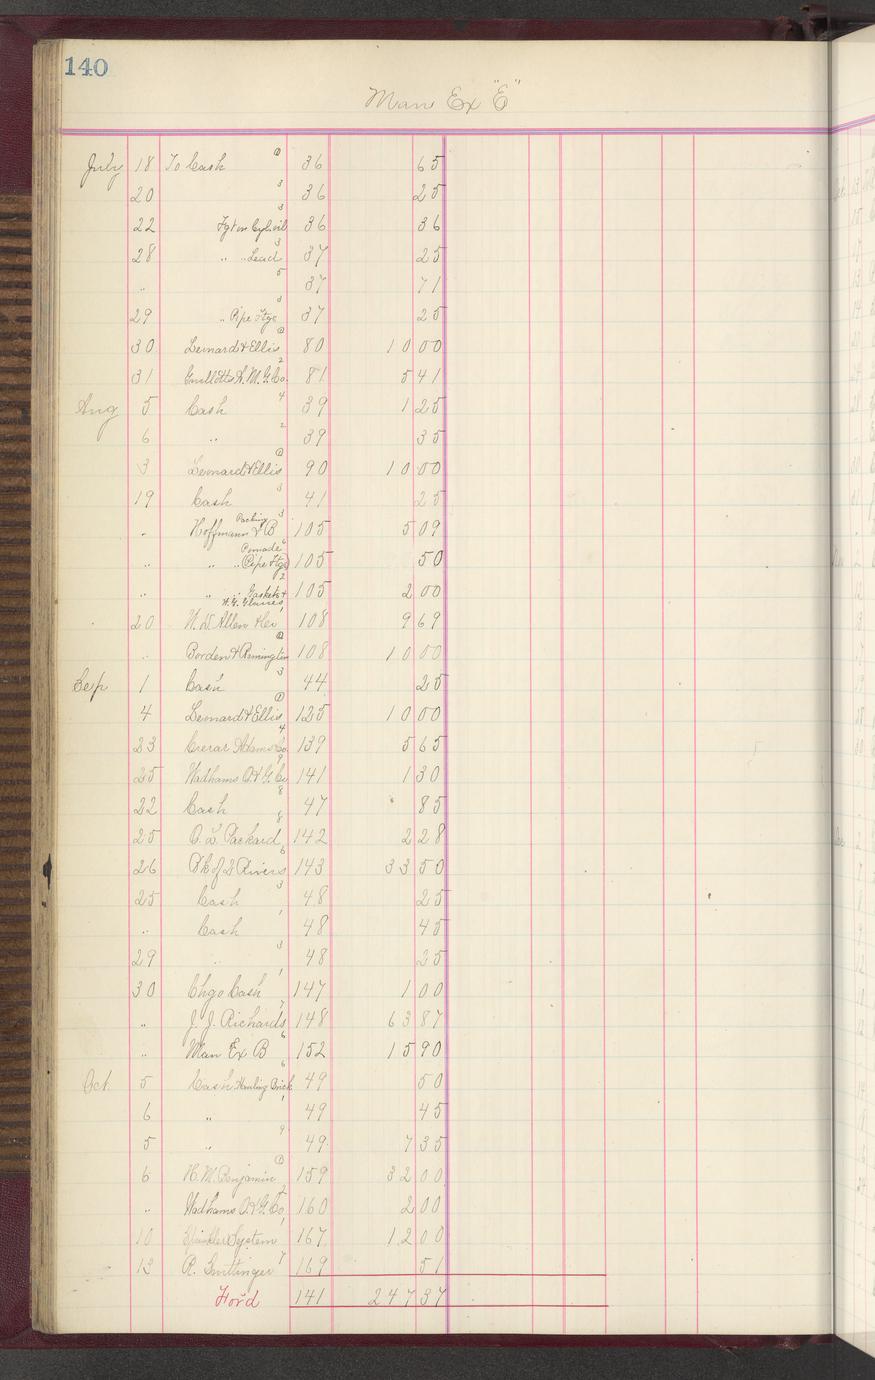 140
Man Ex "E"
July 18 To Cash 36 65
20 3 36 25
22 Fgt on Cyl. oil 3 36 36
28 " " Lead 3 37 25
" 5 37 71
29 " Pipe Ftgs 3 37 25
30 Leonard & Ellis 80 10 00
31 A. M. G. Co. 2 81 5 41
Aug 5 Cash 4 39 1 25
6 " 2 39 35
3 Leonard & Ellis 90 10 00
19 Cash 3 41 25
" Hoffmann & B Packing 3 105 5 09
" " " Pomade Pipe Ftgs 6 105 50
" " " Gaskets & W. G. Glasses 2 105 2 00
20 W. D. Allen 1 108 9 69
" Borden & Remington 108 10 00
Sep 1 Cash 3 44 25
4 Leonard & Ellis 125 10 00
23 Crerar Adams Co. 4 139 5 65
25 Wadhams O. & G. Co 9 141 1 30
22 Cash 8 47 85
25 O. L. Packard 8 142 2 28
26 Bk of 2 Rivers 6 143 33 50
25 Cash 3 48 25
" Cash 1 48 45
29 " 3 48 25
30 Chgo Cash 1 147 1 00
" J. J. Richards 7 148 63 87
" Man Ex B 6 152 15 90
Oct. 5 Cash Hauling Brick 6 49 50
6 " 1 49 45
5 " 9 49 7 35
6 H. M. Benjamin 159 32 00
" Wadhams O. & G. Co 2 160 2 00
10 System 1 167 12 00
12 R. 7 169 51
For'd 141 247 37